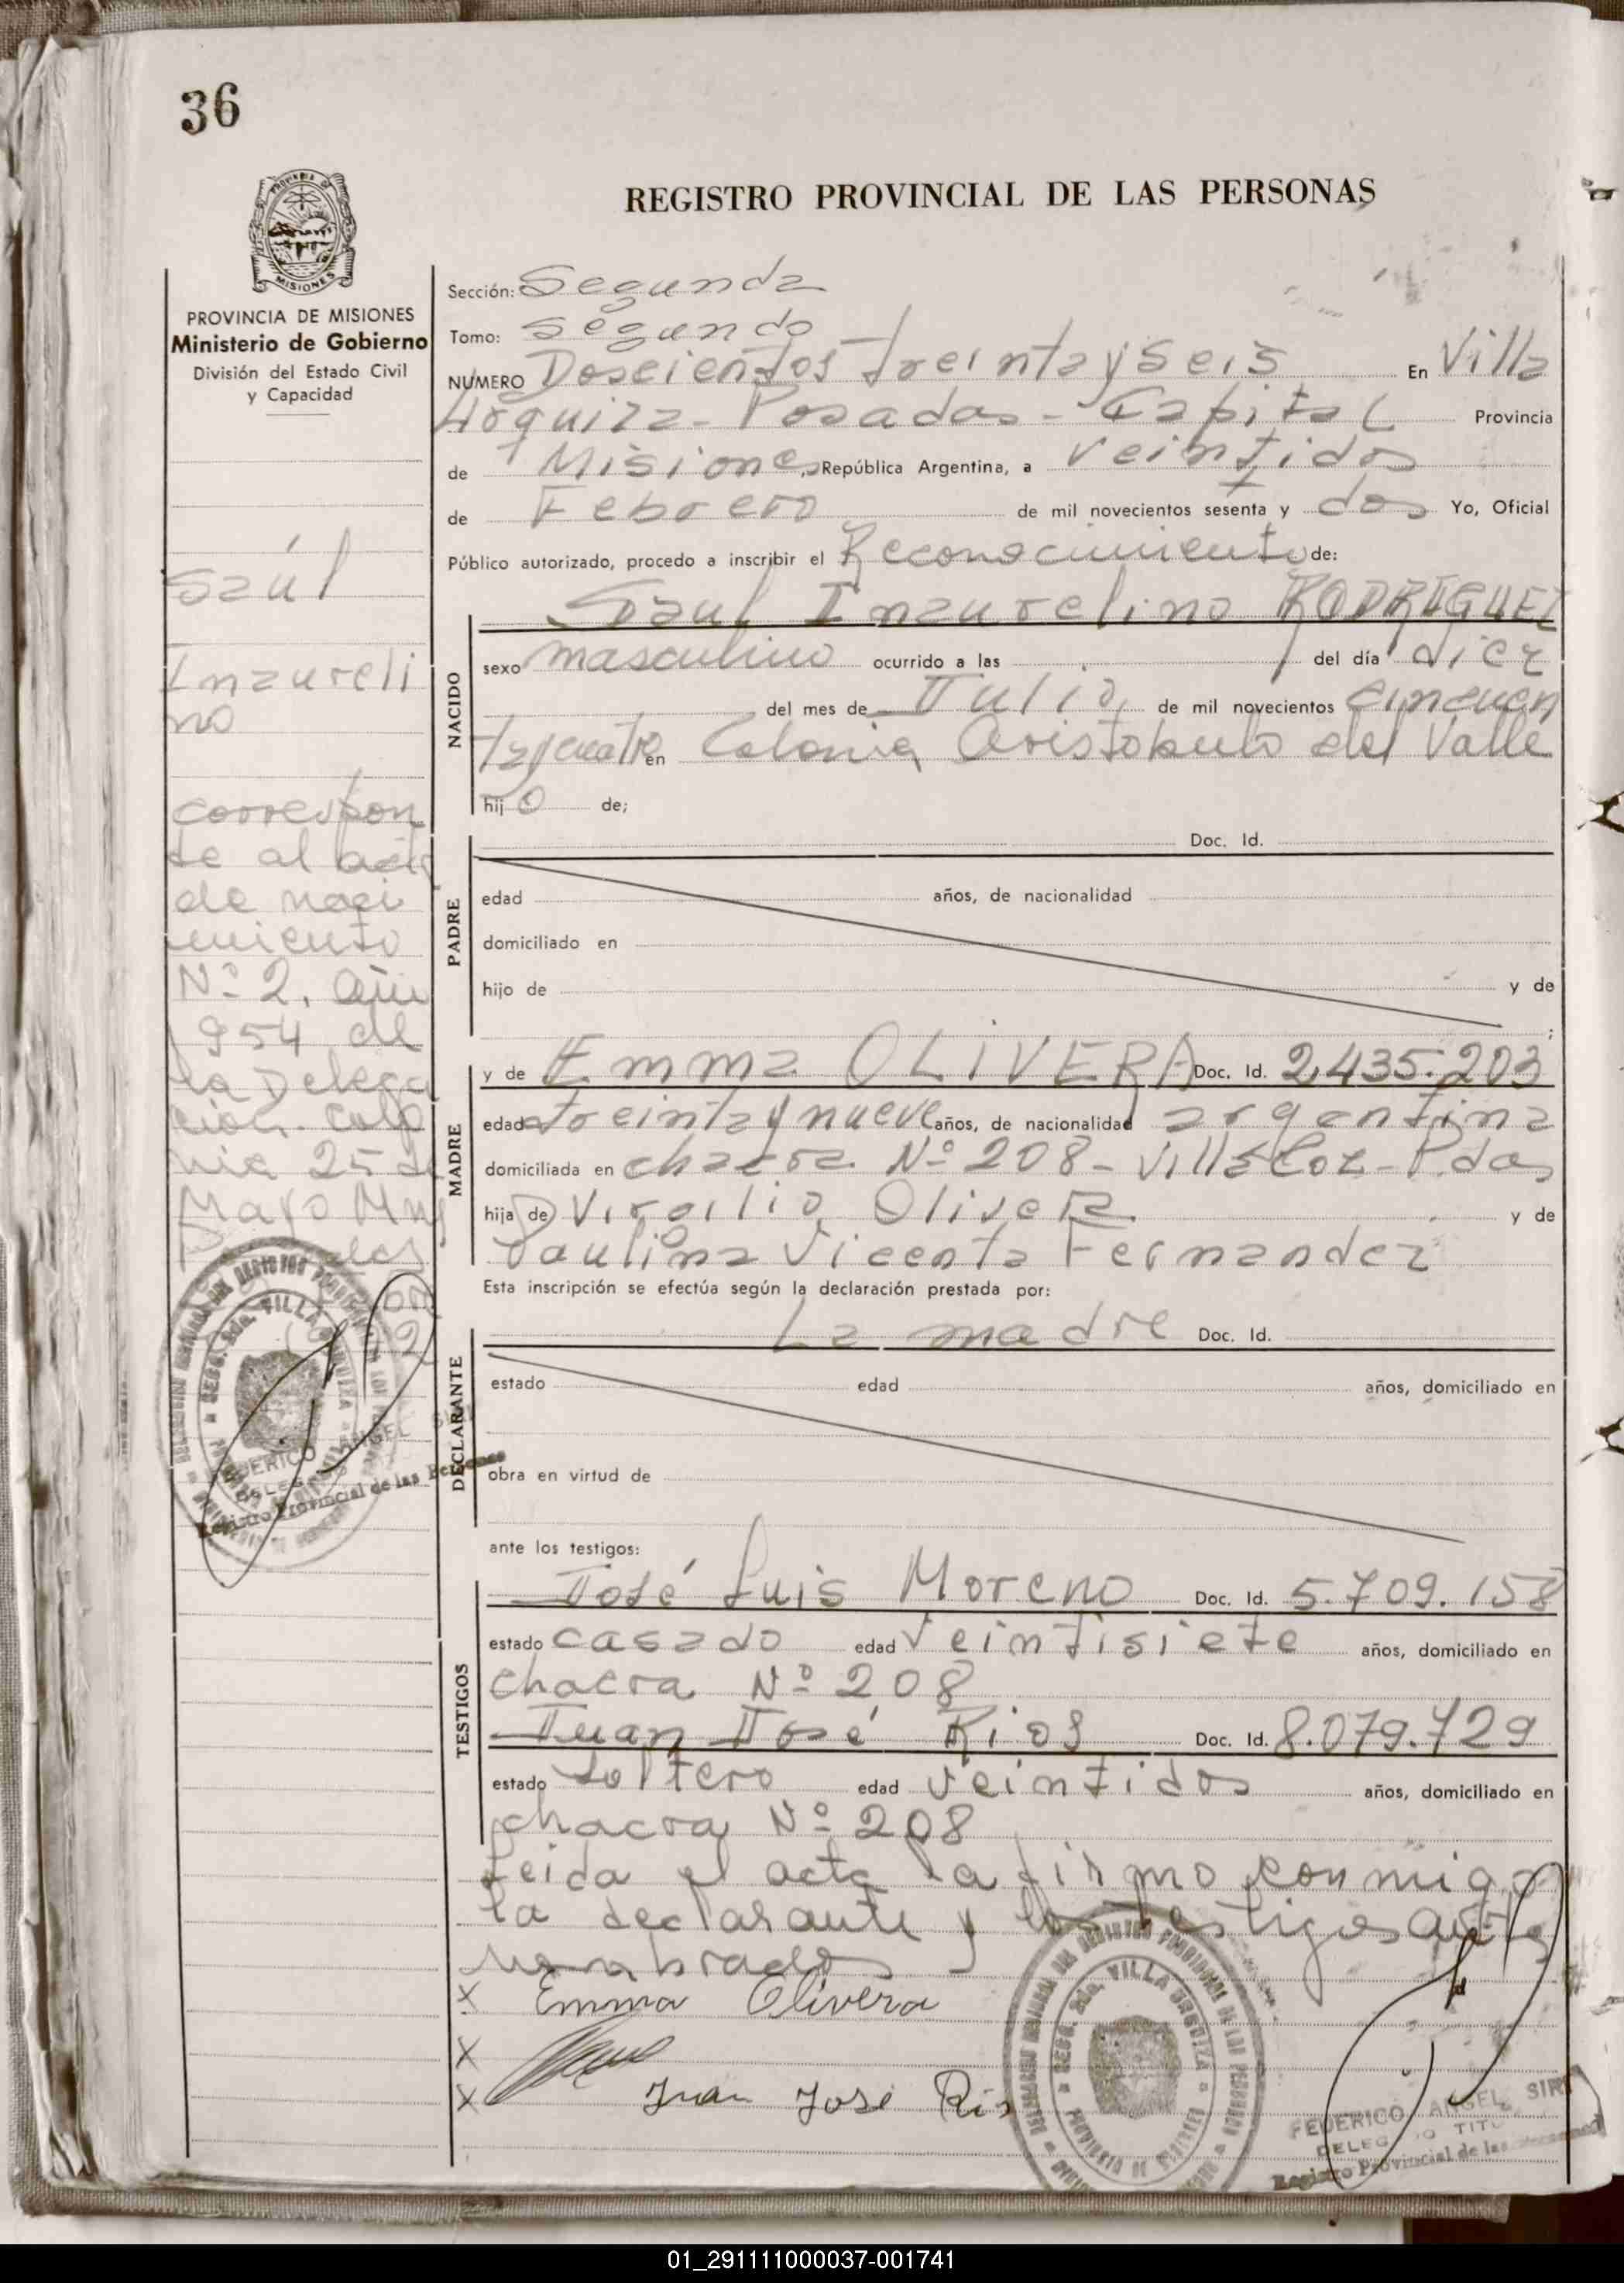 36
REGISTRO PROVINCIAL DE LAS PERSONAS
PROVINCIA DE MISIONES
Ministerio de Gobierno
División del Estado Civil
y Capacidad
Saúl
Inzureli
no
correspon
de al acta
de naci
miento
Nº 2, año
954 de
la Delega
ción. Colo
nia 25 de
Mayo
Sección: Segunda
Tomo: Segundo
NUMERO Doscientos treinta y seis En Villa
Urquiza - Posadas - Capital Provincia
de Misiones, República Argentina, a veintidos
de Febrero de mil novecientos sesenta y dos Yo, Oficial
Público autorizado, procedo a inscribir el Reconocimiento de:
NACIDO
Saul Inzurelino RODRIGUEZ
sexo masculino ocurrido a las del día diez
del mes de Julio de mil novecientos cincuen
ta y cuatro en Colonia Aristobulo del Valle
hijo de;
PADRE
Doc. Id.
edad años, de nacionalidad
domiciliado en
hijo de y de
;
MADRE
y de Emma OLIVERA Doc. Id. 2,435.203
edad treinta y nueve años, de nacionalidad argentina
domiciliada en chacra Nº 208 - Villa - Pdas
hija de Virgilio Olivera y de
Paulina Vicenta Fernandez
Esta inscripción se efectúa según la declaración prestada por:
DECLARANTE
La madre Doc. Id.
estado edad años, domiciliado en
obra en virtud de
ante los testigos:
TESTIGOS
José Luis Moreno Doc. Id. 5.709.158
estado casado edad veintisiete años, domiciliado en
chacra Nº 208
Juan José Rios Doc. Id. 8.079.729
estado soltero edad veintidos años, domiciliado en
chacra Nº 208
Leida el acta la firmo conmigo
la declarante y los testigos ante
nombrados
x Emma Olivera
x
x Juan José Rios
VILLA URQUIZA
PROVINCIA DE MISIONES
FEDERICO ANGEL
Registro Provincial de las Personas
FEDERICO ANGEL
Registro Provincial de las
01_291111000037-001741